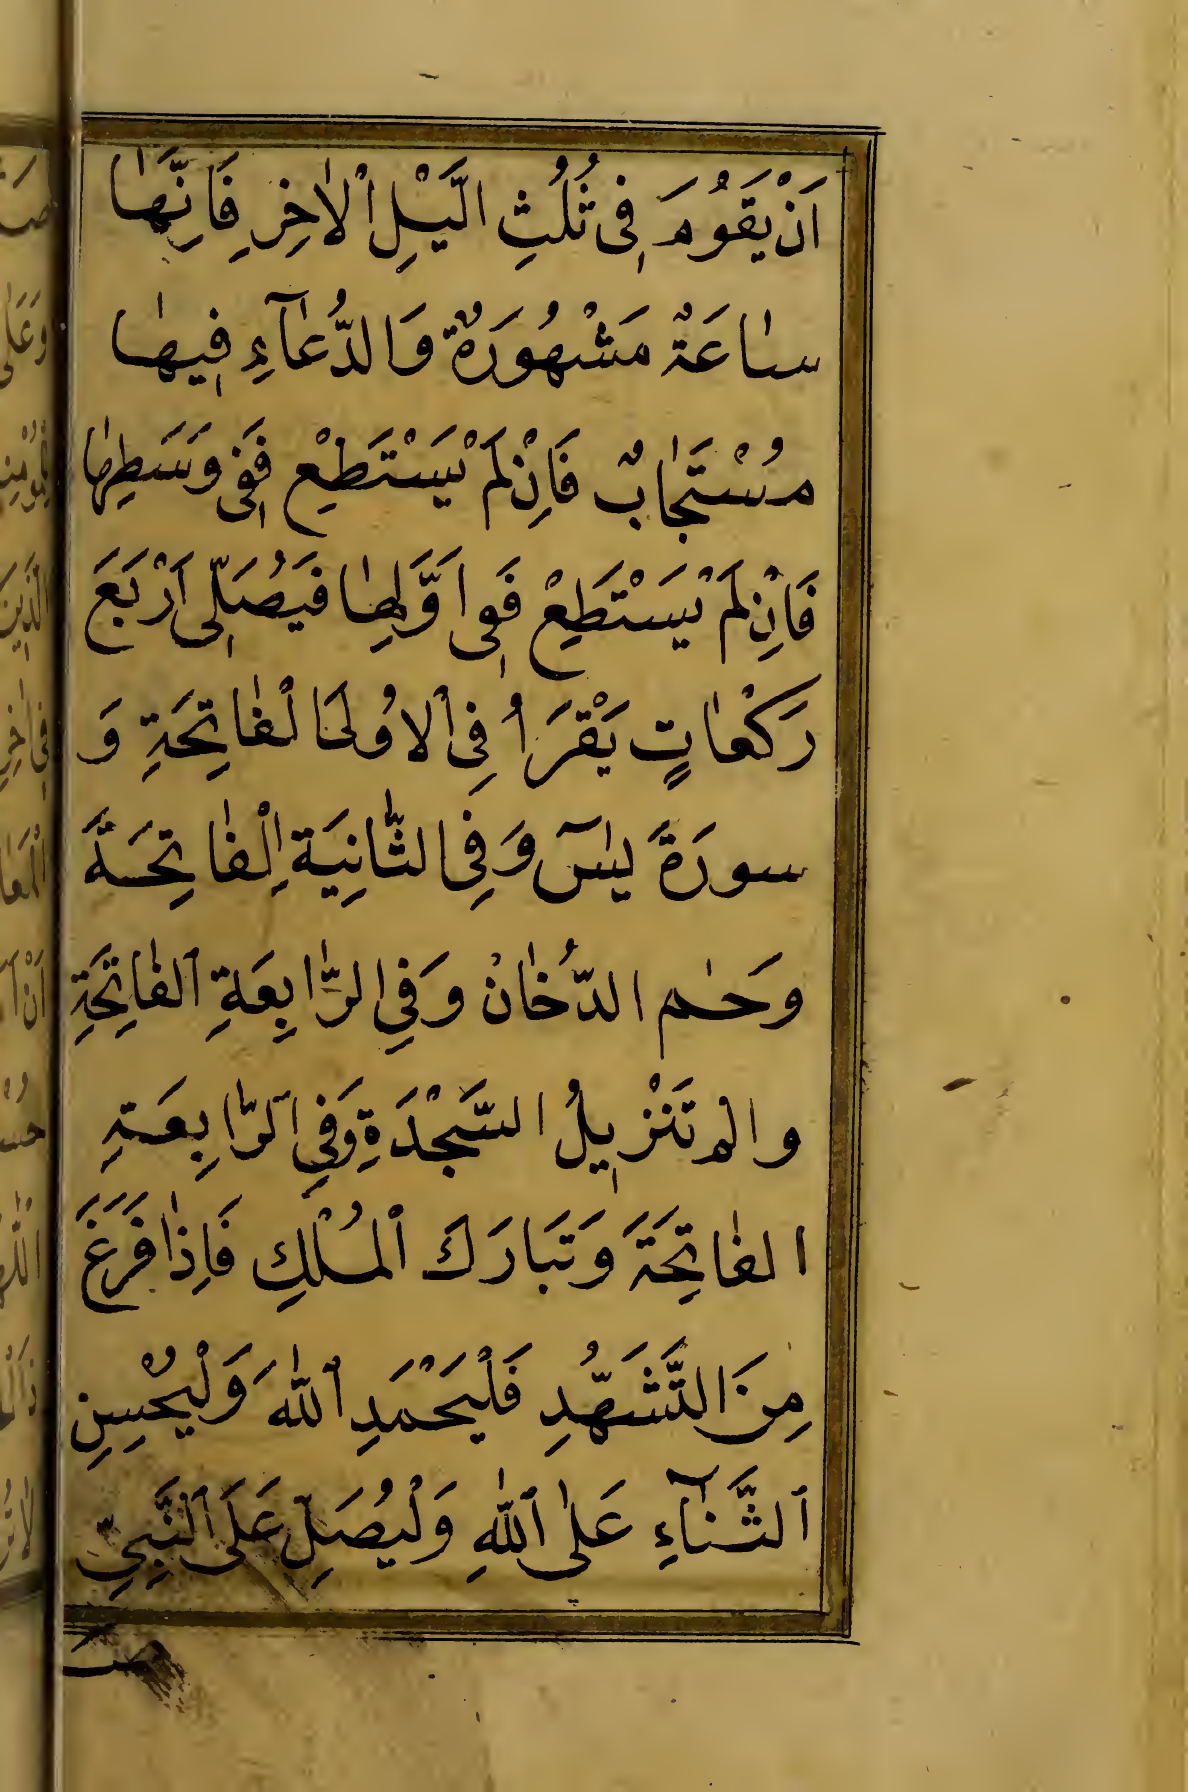 اَنْ يَقُومَ فِى ثُلُثِ الَّيْلِ الْاٰخِرِ فَاِنَّهٰا
سٰاعَةٌ مَشْهُورَةٌ وَالدُّعٰآءِ فِيهٰا
مُسْتَجٰابٌ فَاِنْ لَمْ يَسْتَطِعْ فَفِى وَسَطِهٰا
فَاِنْ لَمْ يَسْتَطِعْ فَفِى اَوَّلِهٰا فَيُصَلِّى اَرْبَعَ
رَكْعٰاتٍ يَقْرَاُ فِى الْاُولَى الْفٰاتِحَةِ وَ
سورَةَ يٰسٓ وَفِى الثّٰانِيَةِ الْفٰاتِحَةَ
وَحٰم الدُّخٰانْ وَفِى الرّٰابِعَةِ الفٰاتِحَةِ
والم تَنْزِيلُ السَّجْدَةِ وَفِى الرّابِعَةِ
الفٰاتِحَةَ وَتَبَارَكَ الْمُلْكِ فَاِذٰا فَرَغَ
مِنَ التَّشَهُّدِ فَلْيَحْمَدِ اللّٰهَ وَلْيُحْسِنِ
الثَّنٰآءِ عَلٰى اللّٰهِ وَلْيُصَلِّ عَلَى النَّبِىِّ